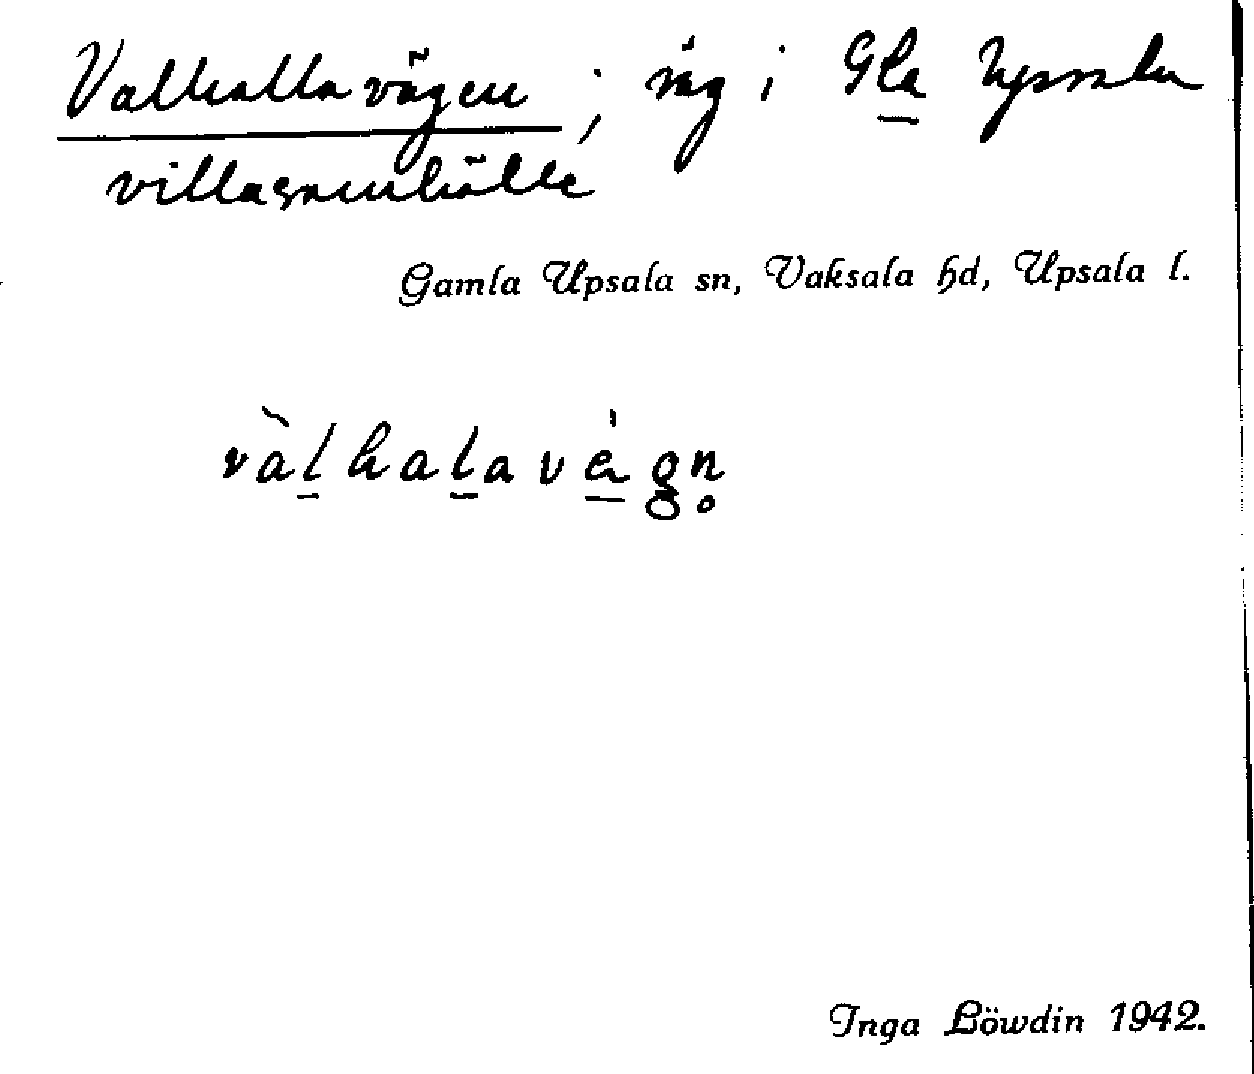 Valhallavägen; väg i Gla Upsala
villasamhälle
Gamla Upsala sn, Vaksala hd, Upsala l.
vàlhalavä́gn̥
Inga Löwdin 1942.